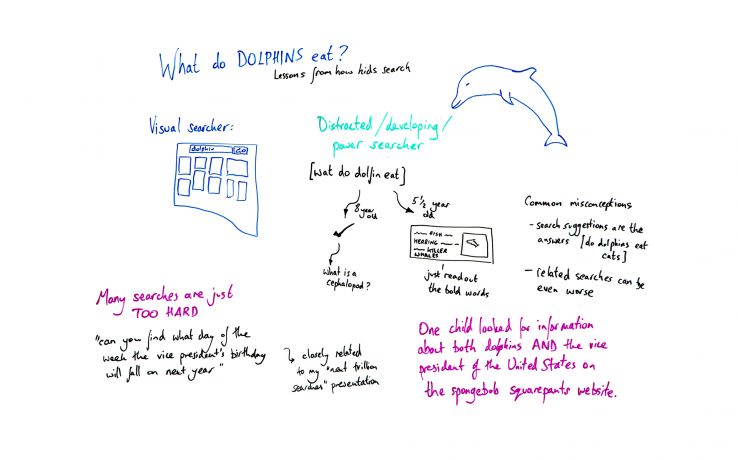 What do DOLPHINS eat?
Lessons from how kids search
Visual searcher:
dolphin GO
Distracted/developing/
power searcher
[wat do dolfin eat]
8 year
old
What is a
cephalopod?
5 1/2 year
old
FISH
HERRING
KILLER
WHALES
just read out
the bold words
Common misconceptions
- search suggestions are the
answers [do dolphins eat
cats]
- related searches can be
even worse
Many searches are just
TOO HARD
"can you find what day of the
week the vice president's birthday
will fall on next year"
closely related
to my "next trillion
searches" presentation
One child looked for information
about both dolphins AND the vice
president of the United States on
the spongebob squarepants website.